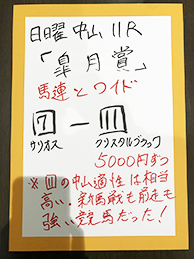 日曜 中山 11R
「皐月賞」
馬連とワイド
7 ー 11
サリオス クリスタルブラック
5000円ずつ
※11の中山適性は相当
高い。新馬戦も前走も
強い競馬だった!